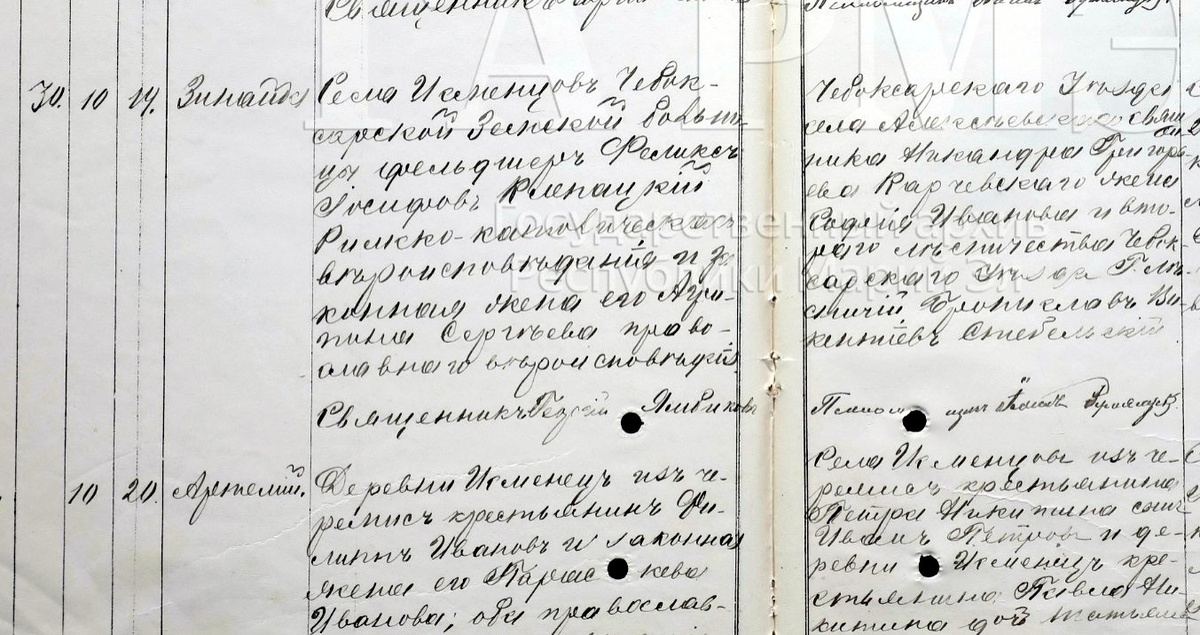 Священникъ
30. 10 14. Зинаида
Села Икменцовъ Чебок-
сарской Земской больни-
цы фельдшеръ Феликсъ
Іосифовъ Клепацкій
Римско-католическаго
вѣроисповѣданія и за
конная жена его Агри-
пина Сергѣева право-
славнаго вѣроисповѣданія
Священникъ Георгій Ямбиковъ
Чебоксарскаго Уѣзда
села Алексѣевскаго свящ
ника Никандра Григорь
ева Карчевскаго жена
Софія Иванова и вто-
раго лѣсничества Чебок-
сарскаго Уѣзда Г. лѣ-
сничій Брониславъ Ви-
кентіевъ Стебельскій
Псаломщикъ
10 20. Артемій.
Деревни Икменецъ изъ че-
ремисъ крестьянинъ Фи-
липпъ Ивановъ и законная
жена его Параскева
Иванова; оба православ-
Села Икменцовъ изъ че-
ремисъ крестьянина
Петра Никитина сынъ
Иванъ Петровъ и де-
ревни Икменецъ кре-
стьянина Павла Ни-
китина дочь Татьяна
ГАРМЭ
Государственный архив
Республики Марий Эл